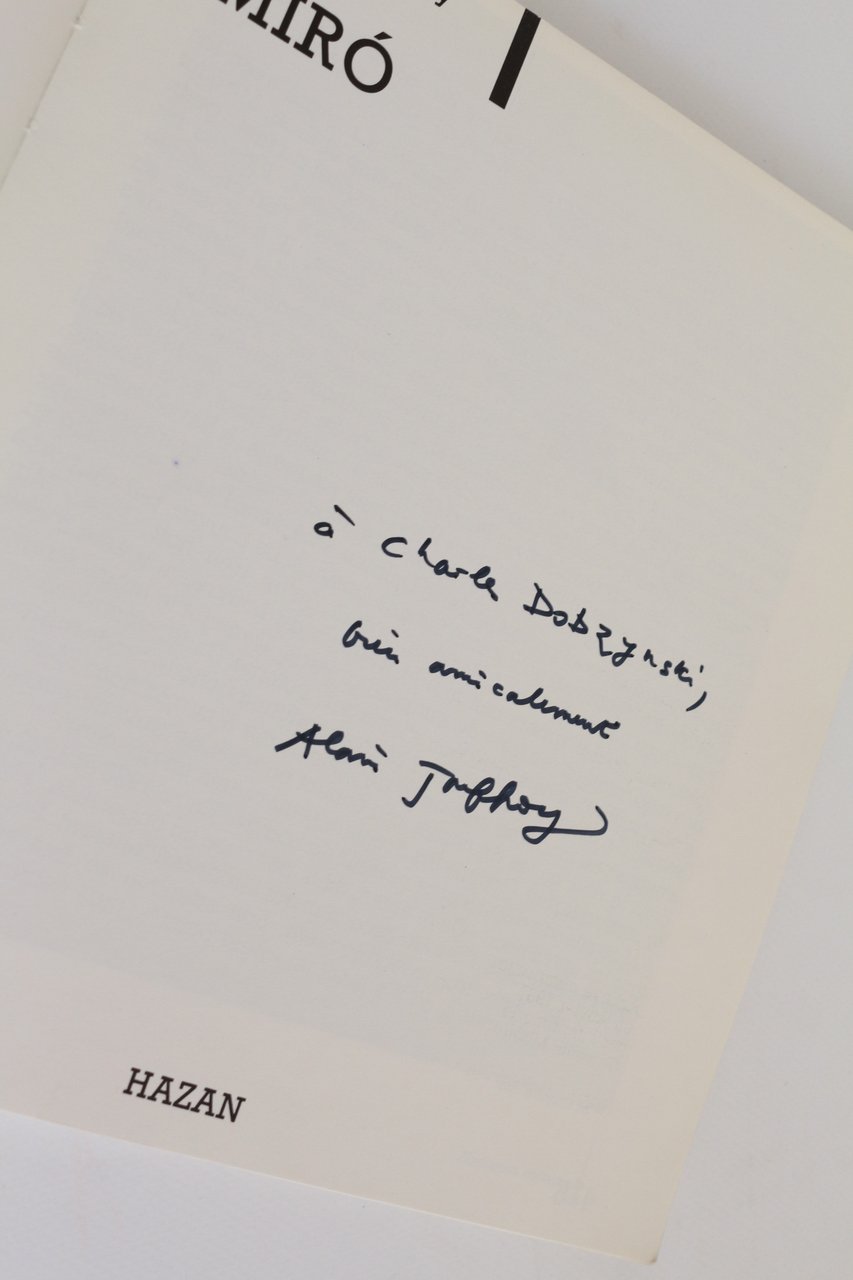 MIRÓ
à Charles Dobzynski,
bien amicalement
Alain Jouffroy
HAZAN